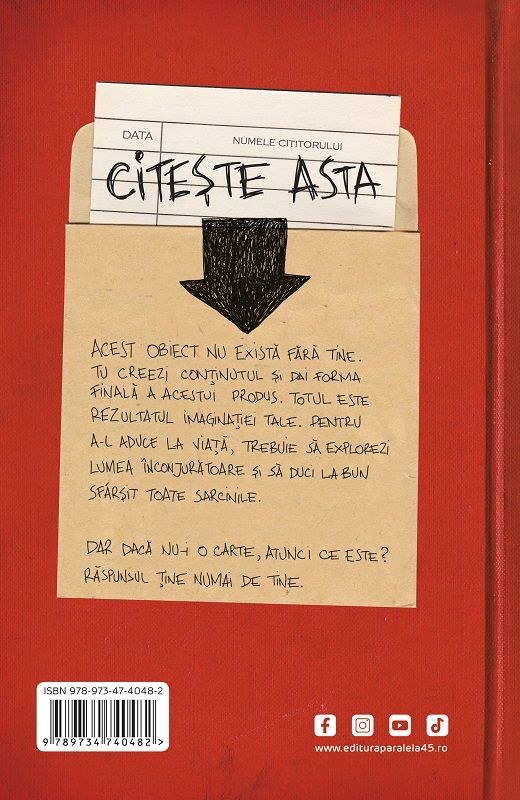 DATA
NUMELE CITITORULUI
CITEȘTE ASTA
ACEST OBIECT NU EXISTĂ FĂRĂ TINE.
TU CREEZI CONȚINUTUL ȘI DAI FORMA
FINALĂ A ACESTUI PRODUS. TOTUL ESTE
REZULTATUL IMAGINAȚIEI TALE. PENTRU
A-L ADUCE LA VIAȚĂ, TREBUIE SĂ EXPLOREZI
LUMEA ÎNCONJURĂTOARE ȘI SĂ DUCI LA BUN
SFÂRȘIT TOATE SARCINILE.
DAR DACĂ NU-I O CARTE, ATUNCI CE ESTE?
RĂSPUNSUL ȚINE NUMAI DE TINE.
ISBN 978-973-47-4048-2
9 789734 740482 >
www.edituraparalela45.ro